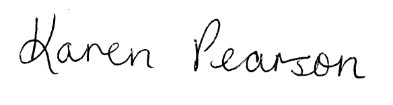 Karen Pearson